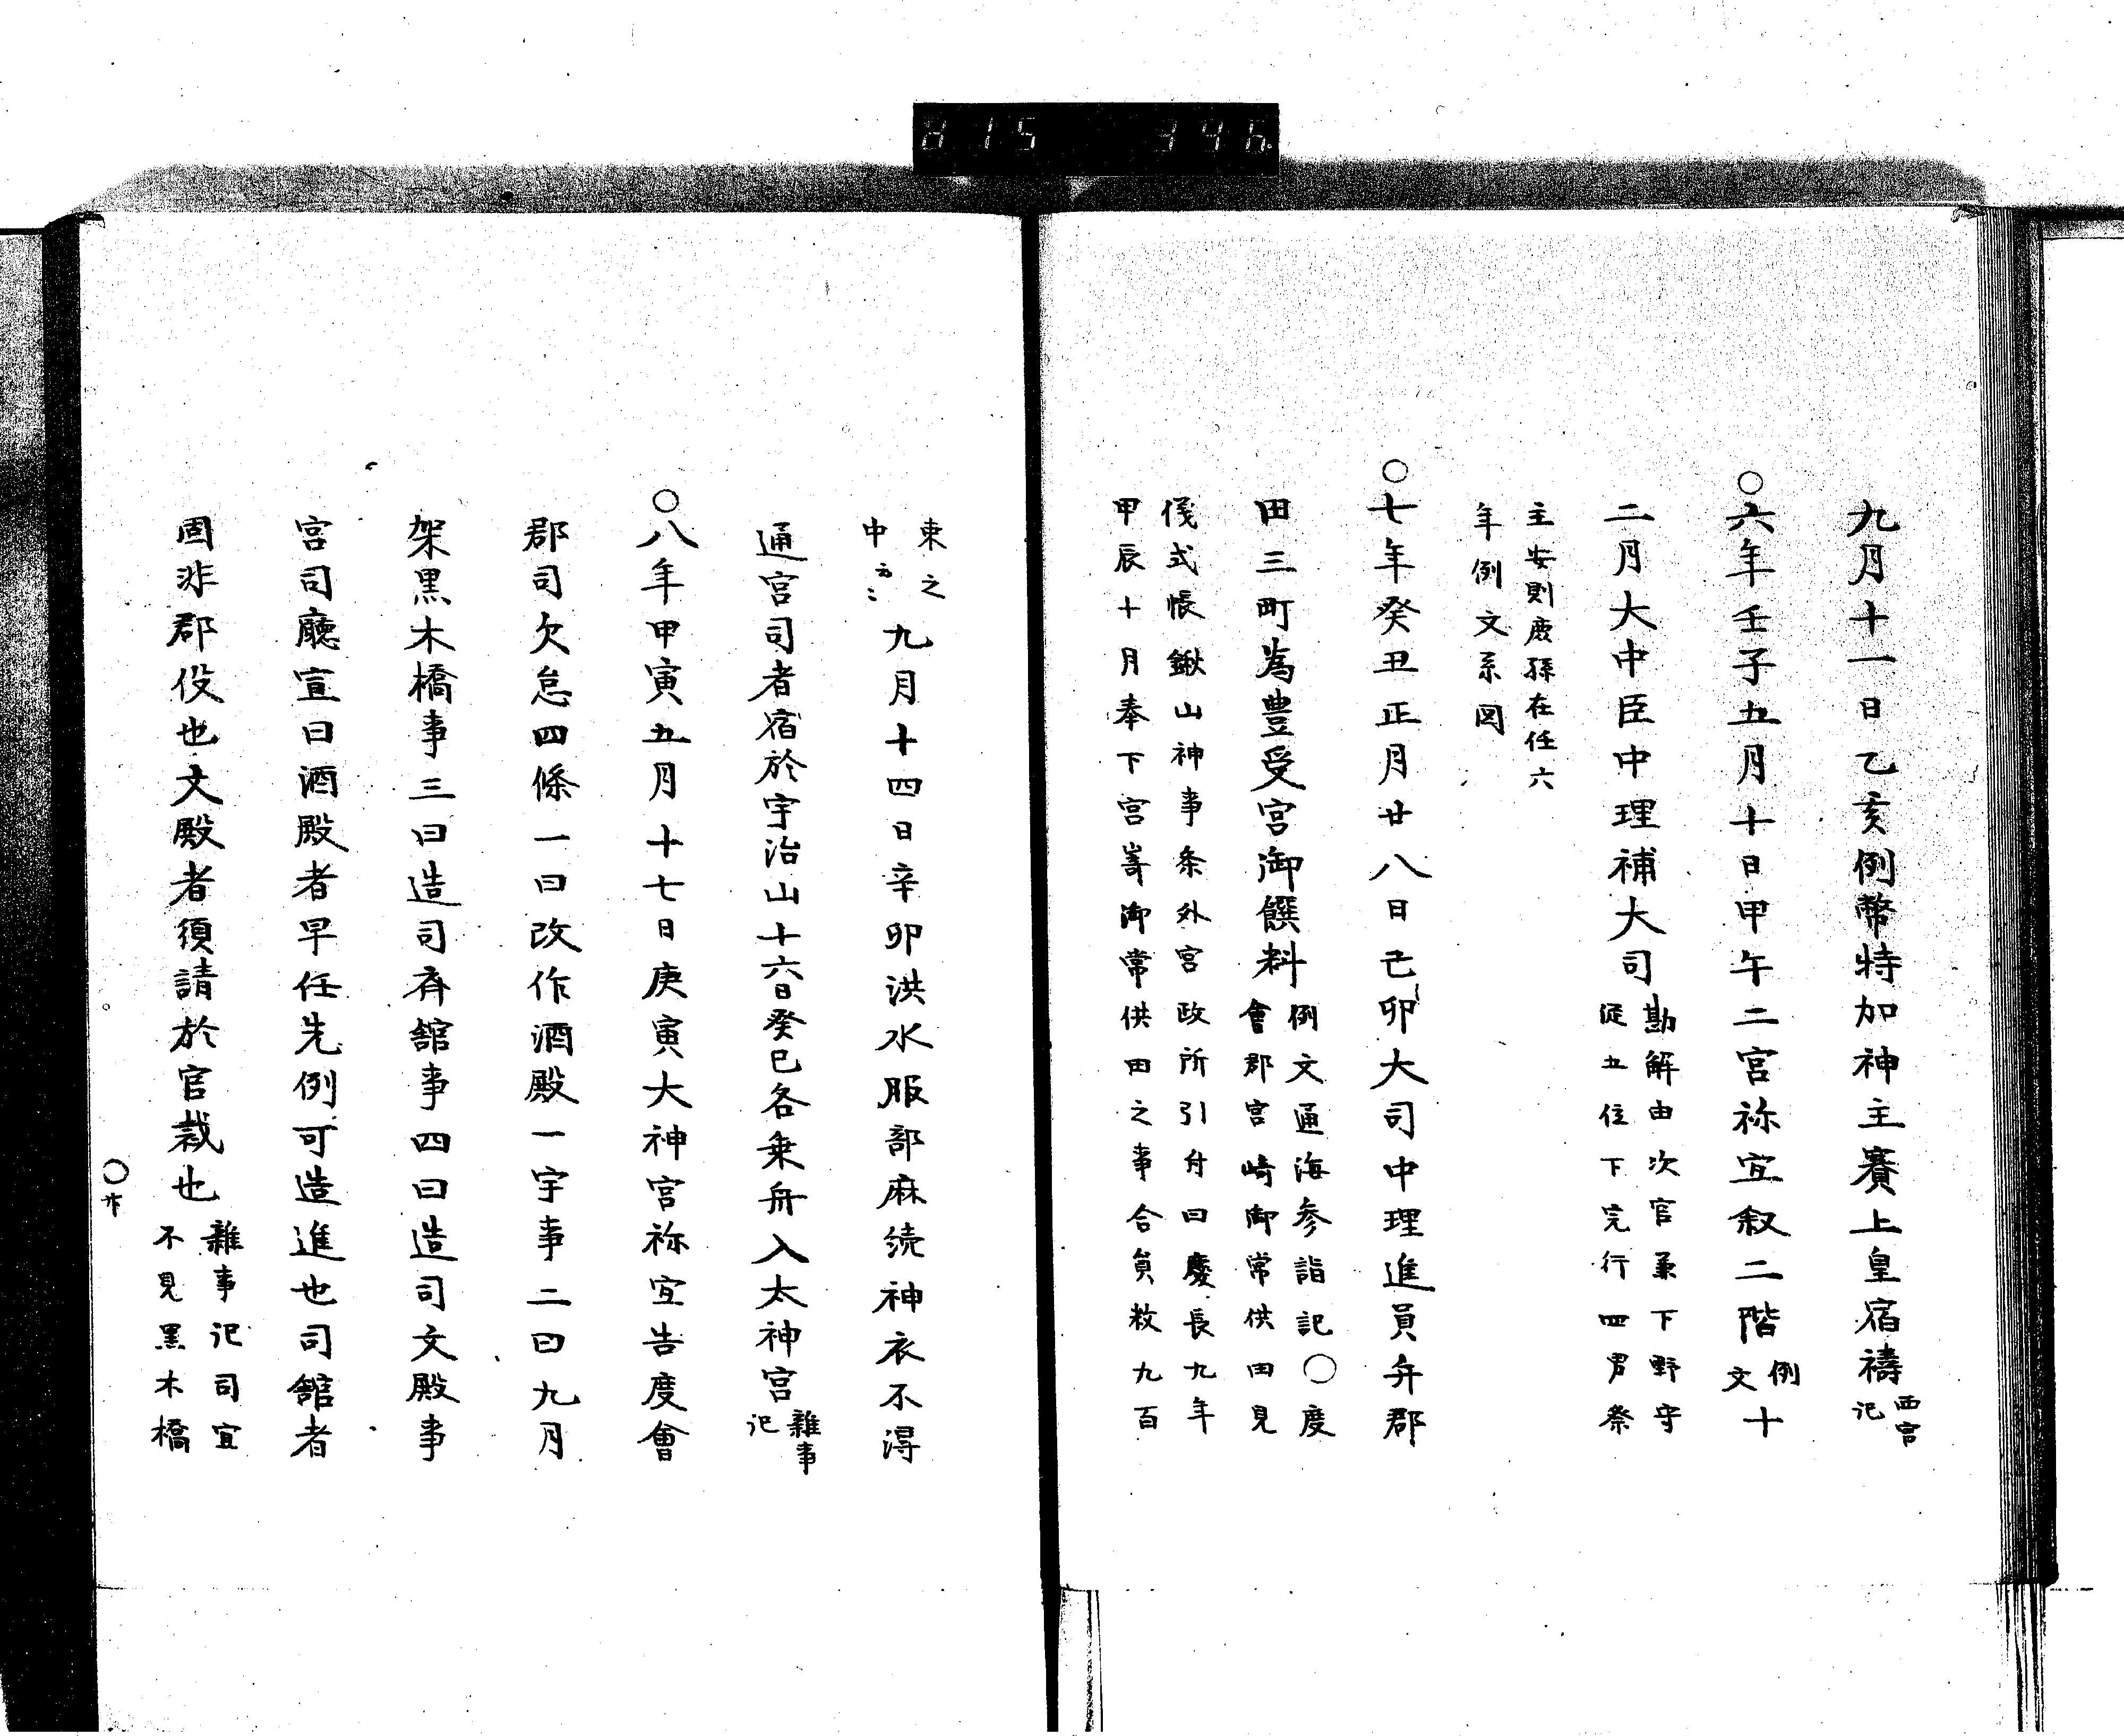 815 346
九月十一日乙亥例幣特加神主賽上皇宿禱西宮
記
〇六年壬子五月十日甲午二宮祢宜叙二階例
文十
二月大中臣中理補大司勘解由次官兼下野守
従五位下完行四男祭
主安則庶孫在任六
年例文系図
〇七年癸丑正月廿八日己卯大司中理進員弁郡
田三町為豊受宮御饌料例文通海参詣記〇度
會郡宮崎御常供田見
儀式帳鍬山神事条外宮政所引付曰慶長九年
甲辰十月奉下宮嵜御常供田之事合負枚九百
束之
中云〻
九月十四日辛卯洪水服部麻続神衣不得
通宮司者宿於宇治山十六日癸巳各乗舟入太神宮雜事
記
〇八年甲寅五月十七日庚寅大神宮祢宜告度會
郡司欠怠四條一曰改作酒殿一宇事二曰九月
架黒木橋事三曰造司斉舘事四曰造司文殿事
宮司廳宣曰酒殿者早任先例可造進也司舘者
固非郡役也文殿者須請於官裁也雜事記司宣
不見黒木橋
〇